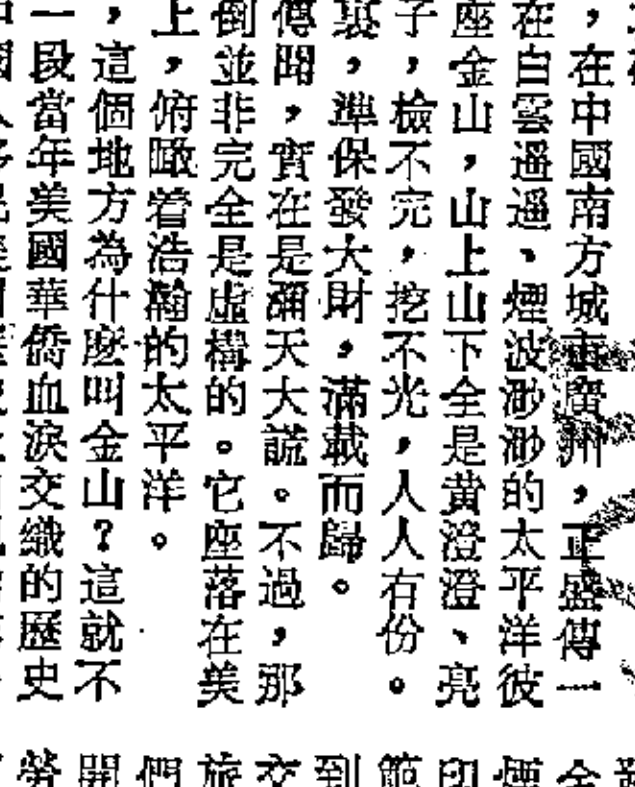 ，在中國南方城市廣州，正盛傳一
在白雲遥遥、煙波渺渺的太平洋彼
座金山，山上山下全是黄澄澄、亮
子，檢不完，挖不光，人人有份。
裏，準保發大財，滿載而歸。
傳聞，實在是彌天大謊。不過，那
倒並非完全是虛構的。它座落在美
上，俯瞰着浩瀚的太平洋。
，這個地方為什麽叫金山？這就不
一段當年美國華僑血淚交織的歷史